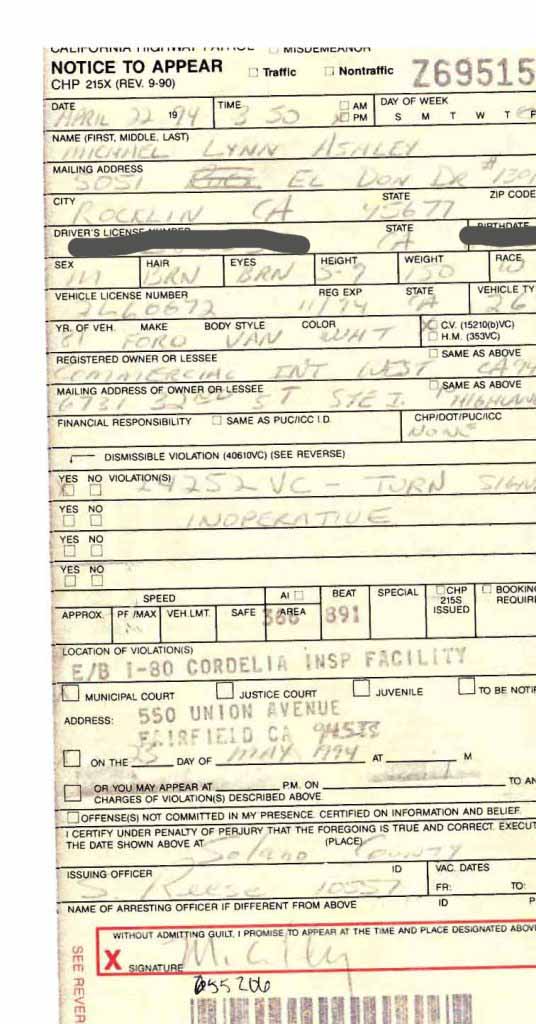 CALIFORNIA HIGHWAY PATROL □ MISDEMEANOR
NOTICE TO APPEAR □ Traffic □ Nontraffic Z69515
CHP 215X (REV. 9-90)
DATE TIME □ AM DAY OF WEEK
APRIL 22 1994 3 50 ☒ PM S M T W T F
NAME (FIRST, MIDDLE, LAST)
MICHAEL LYNN ASHLEY
MAILING ADDRESS
5051 EL DON DR #
CITY STATE ZIP CODE
ROCKLIN CA 95677
DRIVER'S LICENSE NUMBER STATE BIRTHDATE
CA
SEX HAIR EYES HEIGHT WEIGHT RACE
M BRN BRN 5-9 150 W
VEHICLE LICENSE NUMBER REG EXP STATE VEHICLE TY
2G60672 11/94 CA 26
YR. OF VEH. MAKE BODY STYLE COLOR ☒ C.V. (15210(b)VC)
81 FORD VAN WHT □ H.M. (353VC)
REGISTERED OWNER OR LESSEE □ SAME AS ABOVE
COMMERCIAL INT WEST CA
MAILING ADDRESS OF OWNER OR LESSEE □ SAME AS ABOVE
6731 32ND ST STE I
FINANCIAL RESPONSIBILITY □ SAME AS PUC/ICC I.D. CHP/DOT/PUC/ICC
NONE
DISMISSIBLE VIOLATION (40610VC) (SEE REVERSE)
YES NO VIOLATION(S)
☒ □ 24252 VC - TURN SIGN
YES NO
□ □ INOPERATIVE
YES NO
□ □
YES NO
□ □
SPEED AI □ BEAT SPECIAL □ CHP □ BOOKIN
APPROX. PF/MAX VEH.LMT. SAFE AREA 891 215S REQUIRE
366 ISSUED
LOCATION OF VIOLATION(S)
E/B I-80 CORDELIA INSP FACILITY
□ MUNICIPAL COURT □ JUSTICE COURT □ JUVENILE □ TO BE NOTI
ADDRESS: 550 UNION AVENUE
FAIRFIELD CA 94533
□ ON THE DAY OF MAY 1994 AT M
□ OR YOU MAY APPEAR AT P.M. ON TO AN
CHARGES OF VIOLATION(S) DESCRIBED ABOVE.
□ OFFENSE(S) NOT COMMITTED IN MY PRESENCE. CERTIFIED ON INFORMATION AND BELIEF.
I CERTIFY UNDER PENALTY OF PERJURY THAT THE FOREGOING IS TRUE AND CORRECT. EXECUT
THE DATE SHOWN ABOVE AT (PLACE)
Solano County
ISSUING OFFICER ID VAC. DATES
S. Reese 10557 FR: TO:
NAME OF ARRESTING OFFICER IF DIFFERENT FROM ABOVE ID
WITHOUT ADMITTING GUILT, I PROMISE TO APPEAR AT THE TIME AND PLACE DESIGNATED ABOV
X SIGNATURE
SEE REVER